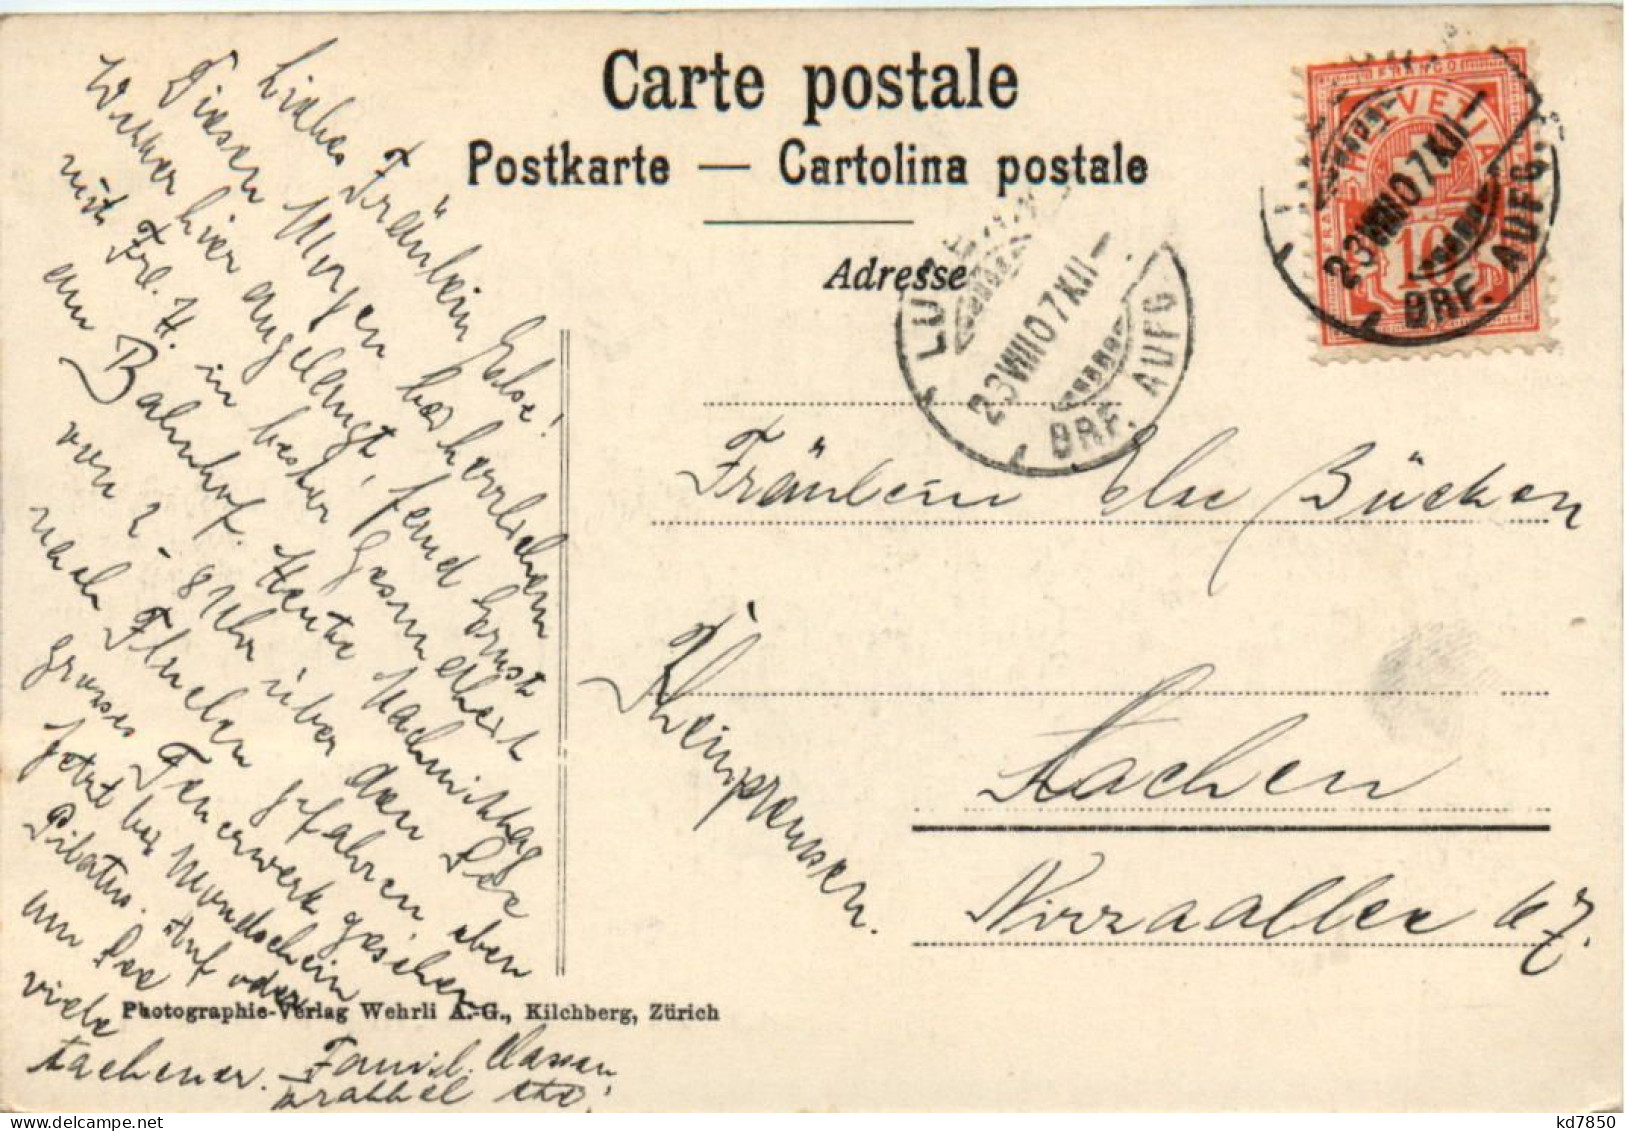 Carte postale
Postkarte — Cartolina postale
Adresse
HELVETIA
FRANCO
10
LUZERN
23 VIII 07 XII
BRF. AUFG.
LUZERN
23 VIII 07 XII
BRF. AUFG
Liebes Fräulein Else!
Diesen Morgen bei herrlichem
Wetter hier angelangt, fand Ernst
mit Frl. H. in bester Gesundheit
am Bahnhof. Heute Nachmittag
von 2-8 Uhr über den See
nach Fluelen gefahren, eben
grosses Feuerwerk gesehen
jetzt bei Mondschein
Pilatus. Auf oder
am See
viele
Aachener. Famil. Classen
etc.
Fräulein Else Bücken
Aachen
Rheinpreussen.
Nizzaallee 67.
Photographie-Verlag Wehrli A.-G., Kilchberg, Zürich
kd7850